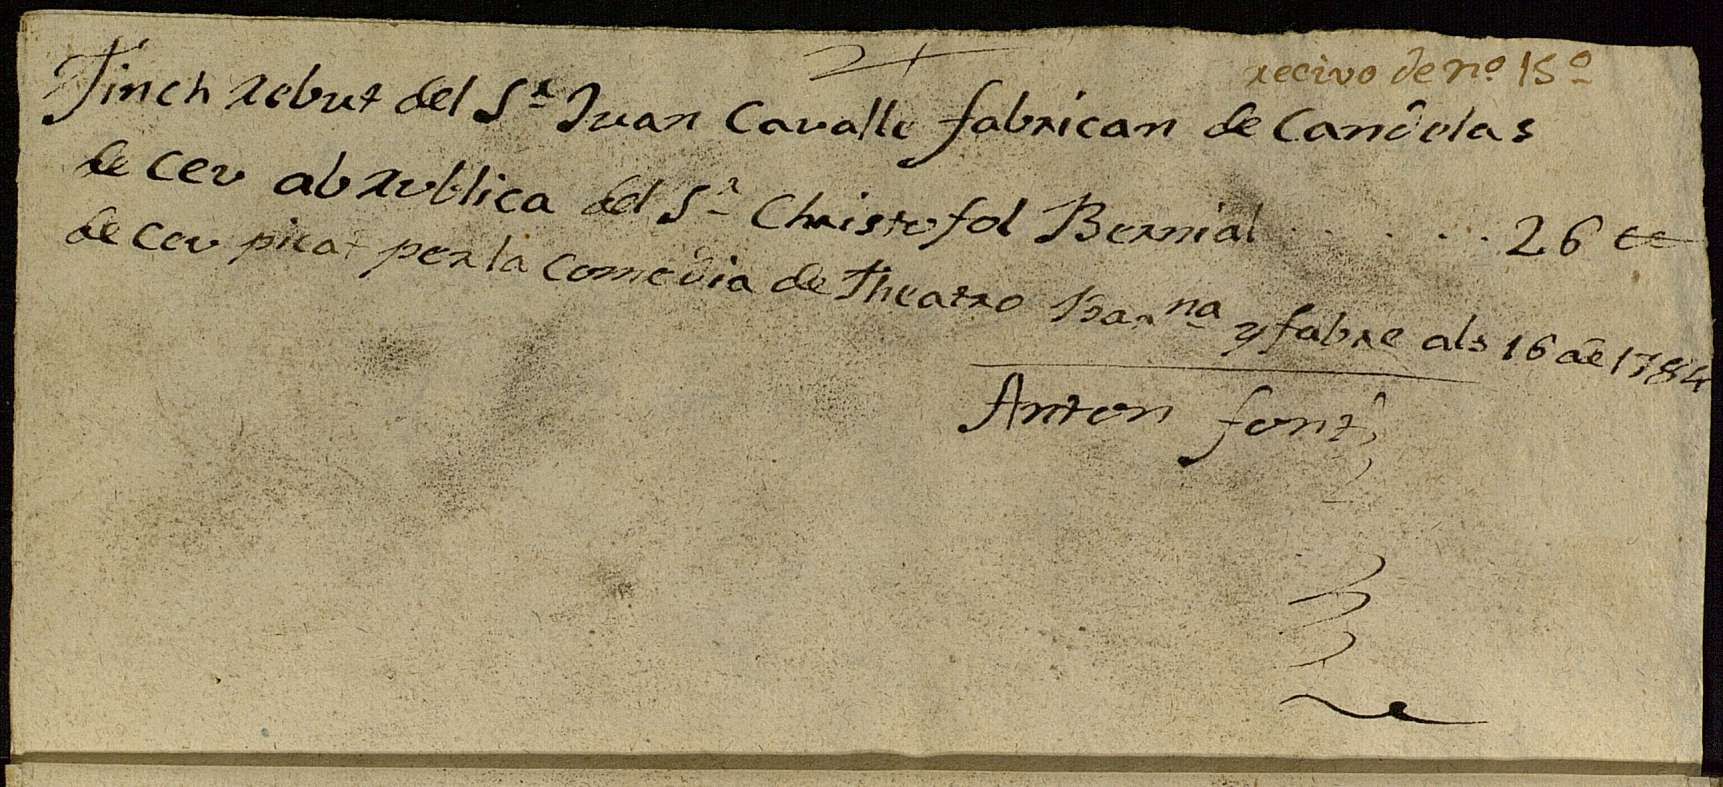 recivo de nº 15º
Tinch rebut del Sr Juan Cavalle fabrican de Candelas
de cev ab rublica del Sr Christofol Bernial . . . . . 26 tt
de cev picat per la comedia de Theatro Barna y fabre als 16 de 1784
Anton font